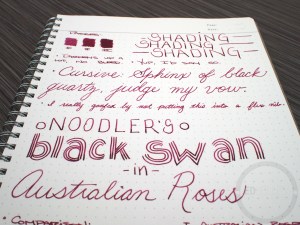 SHADING
SHADING
SHADING
• Yup, I'd say so.
• Cursive: Sphinx of black
quartz, judge my vow.
• I really goofed by not putting this into a flex nib.
NOODLER'S
black swan
-in-
Australian Roses
• COMPARISON: